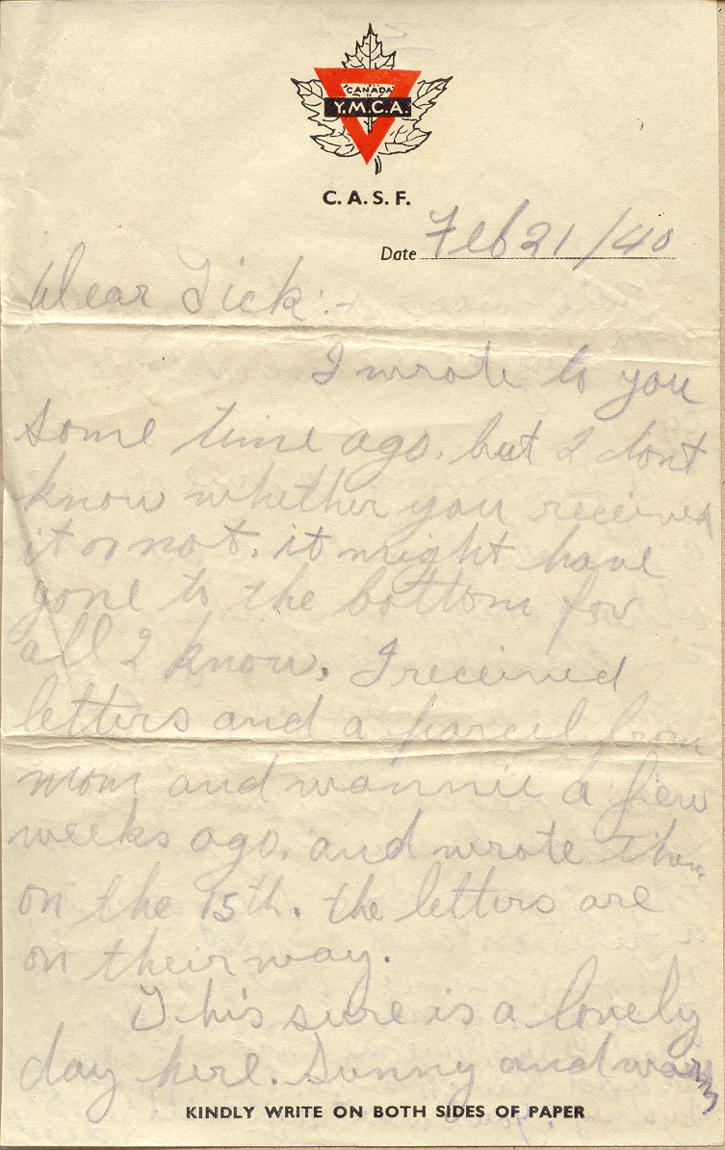 CANADA
Y.M.C.A.
C. A. S. F.
Date Feb 21/40
Dear Tick:-
I wrote to you
some time ago, but I dont
know whether you received
it or not. it might have
gone to the bottom for
all I know. I received
letters and a parcel from
mom and wannie a few
weeks ago, and wrote them
on the 15th. the letters are
on their way.
This sure is a lovely
day here. Sunny and warm
KINDLY WRITE ON BOTH SIDES OF PAPER